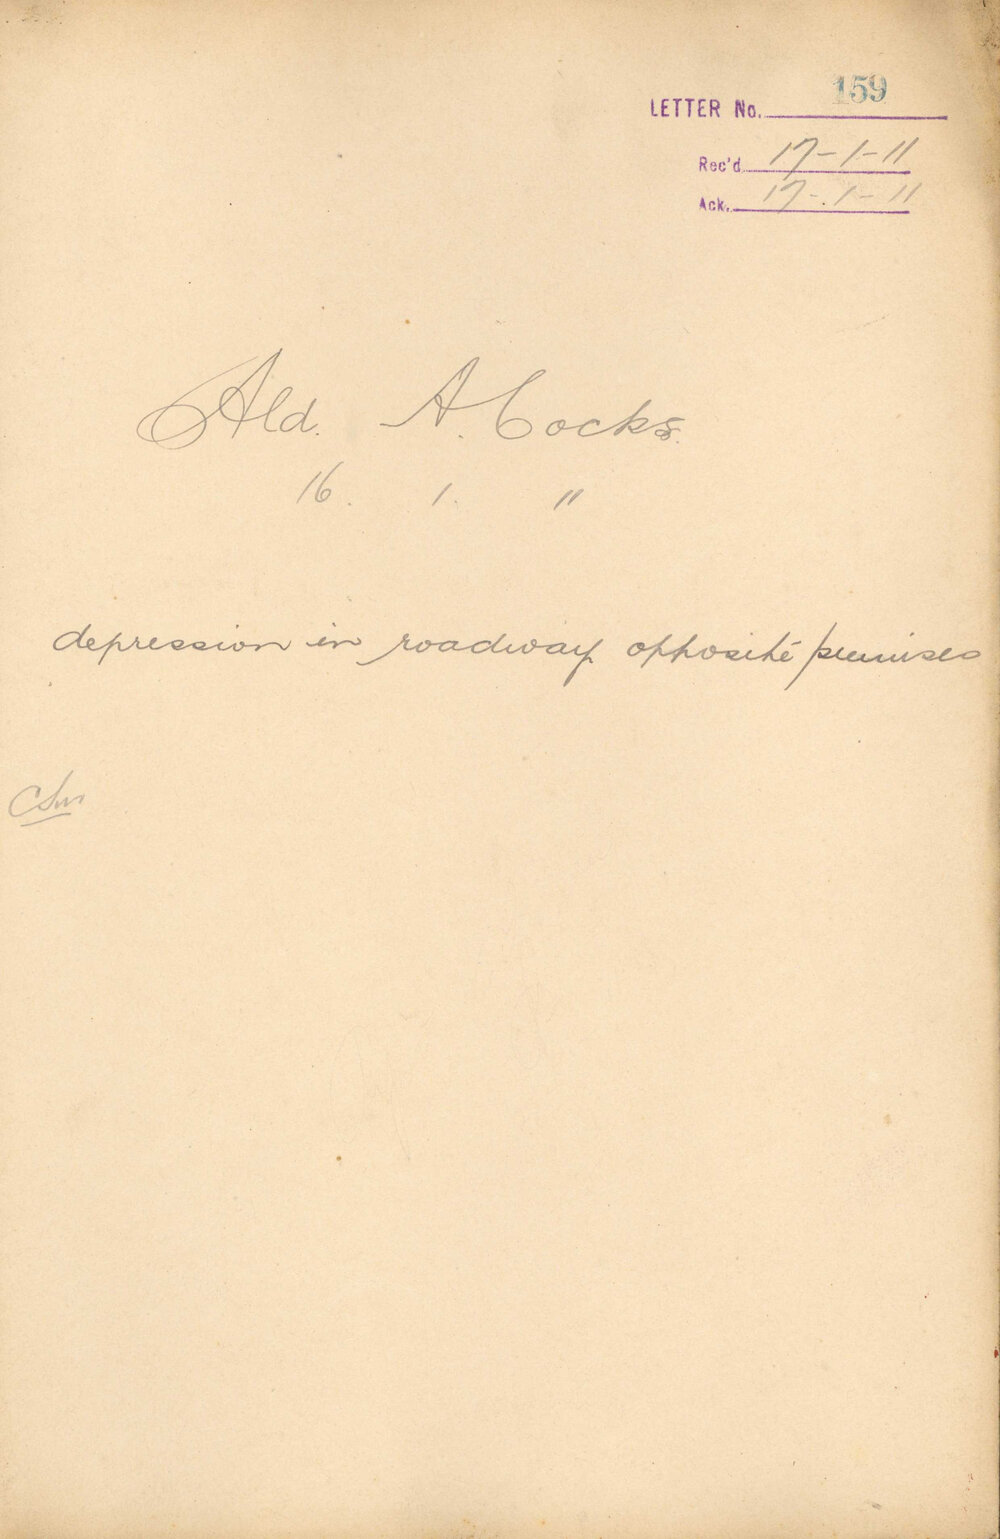 LETTER No. 159
Rec'd 17-1-11
Ack. 17-1-11
Ald. A. Cocks.
16. 1. 11
depression in roadway opposite premises